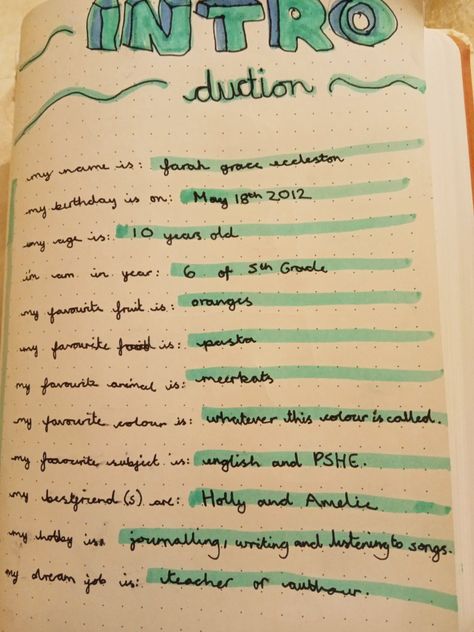 INTRO
duction
my name is: farah grace eccleston
my birthday is on: May 18th 2012
my age is: 10 years old
im am in year: 6 of 5th Grade
my favourite fruit is: oranges
my favourite food is: pasta
my favourite animal is: meerkats
my favourite colour is: whatever this colour is called.
my favourite subject is: english and PSHE.
my bestfriend(s) are: Holly and Amelie
my hobby is: journalling, writing and listening to songs.
my dream job is: teacher or authour.